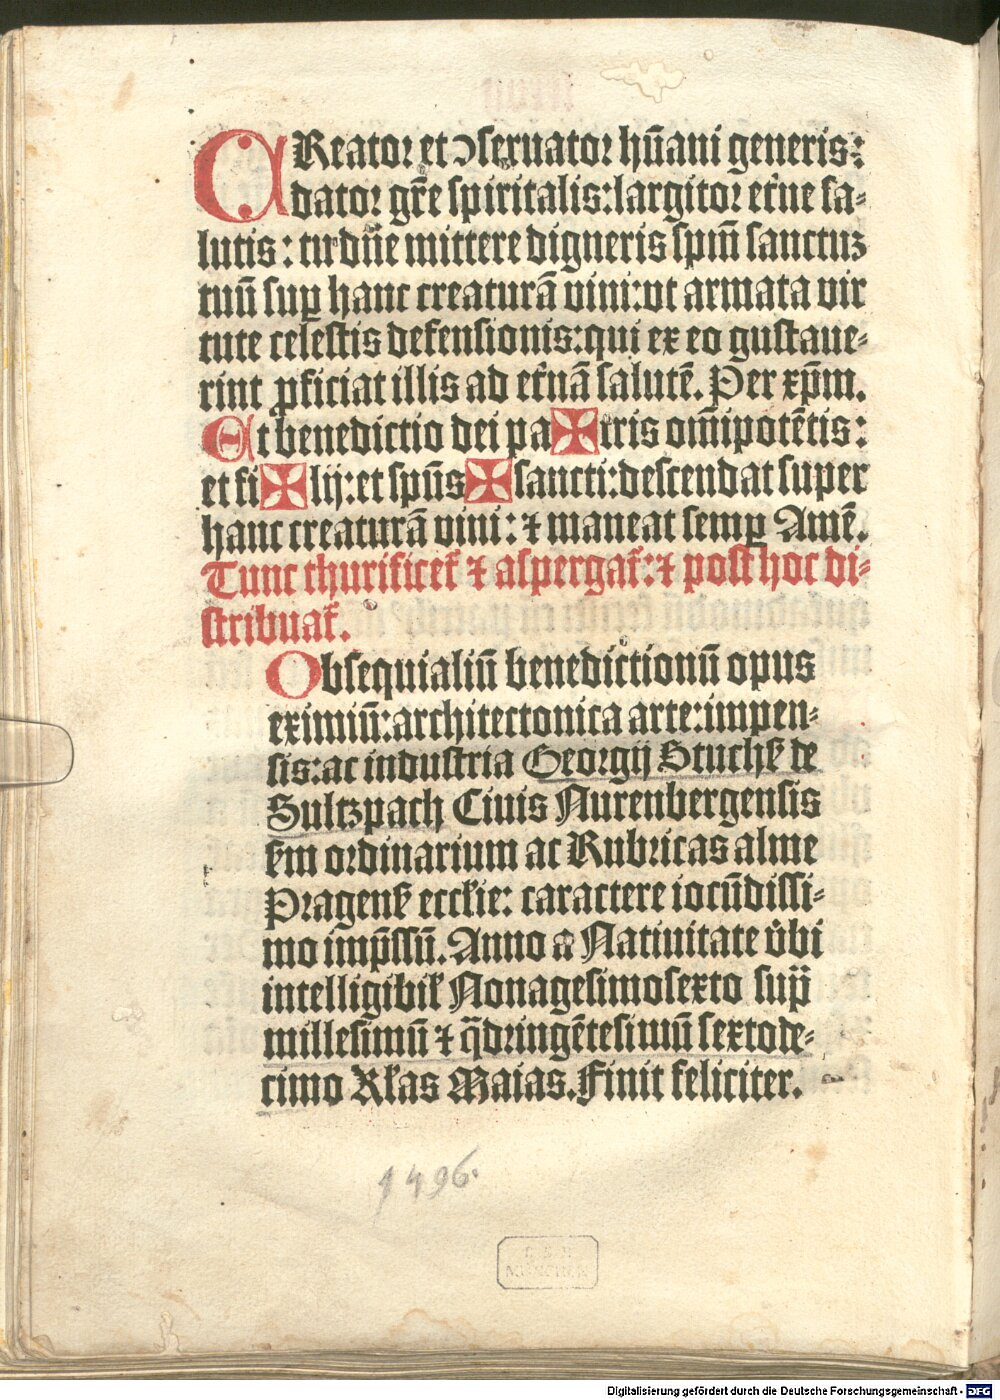 CReator et ↄseruator hūani generis:
dator gr̄e spiritalis: largitor et̄ne sa-
lutis: tu dn̄e mittere digneris spm̄ sanctuꝫ
tuū suꝑ hanc creaturā vini: vt armata vir
tute celestis defensionis: qui ex eo gustaue-
rint ꝓficiat illis ad et̄nā salutē. Per xp̄m.
Et benedictio dei pa✠tris om̄ipotētis:
et fi✠lij: et spūs✠sancti: descendat super
hanc creaturā vini: ⁊ maneat semꝑ Amē.
Tunc thurificet̄ ⁊ aspergat̄: ⁊ post hoc di-
stribuat̄.
Obsequialiū benedictionū opus
eximiū: architectonica arte: impen-
sis: ac industria Georgij Stuchß de
Sultzpach Ciuis Nurenbergensis
ẜm ordinarium ac Rubricas alme
Pragenẜ eccłie: caractere iocūdissi-
mo imp̄ssū. Anno a Natiuitate v̄bi
intelligibił Nonagesimosexto sup̄
millesimū ⁊ q̄dringētesimū sextode-
cimo Kłas Maias. Finit feliciter.
1496.
B. S. B.
MÜNCHEN
Digitalisierung gefördert durch die Deutsche Forschungsgemeinschaft - DFG